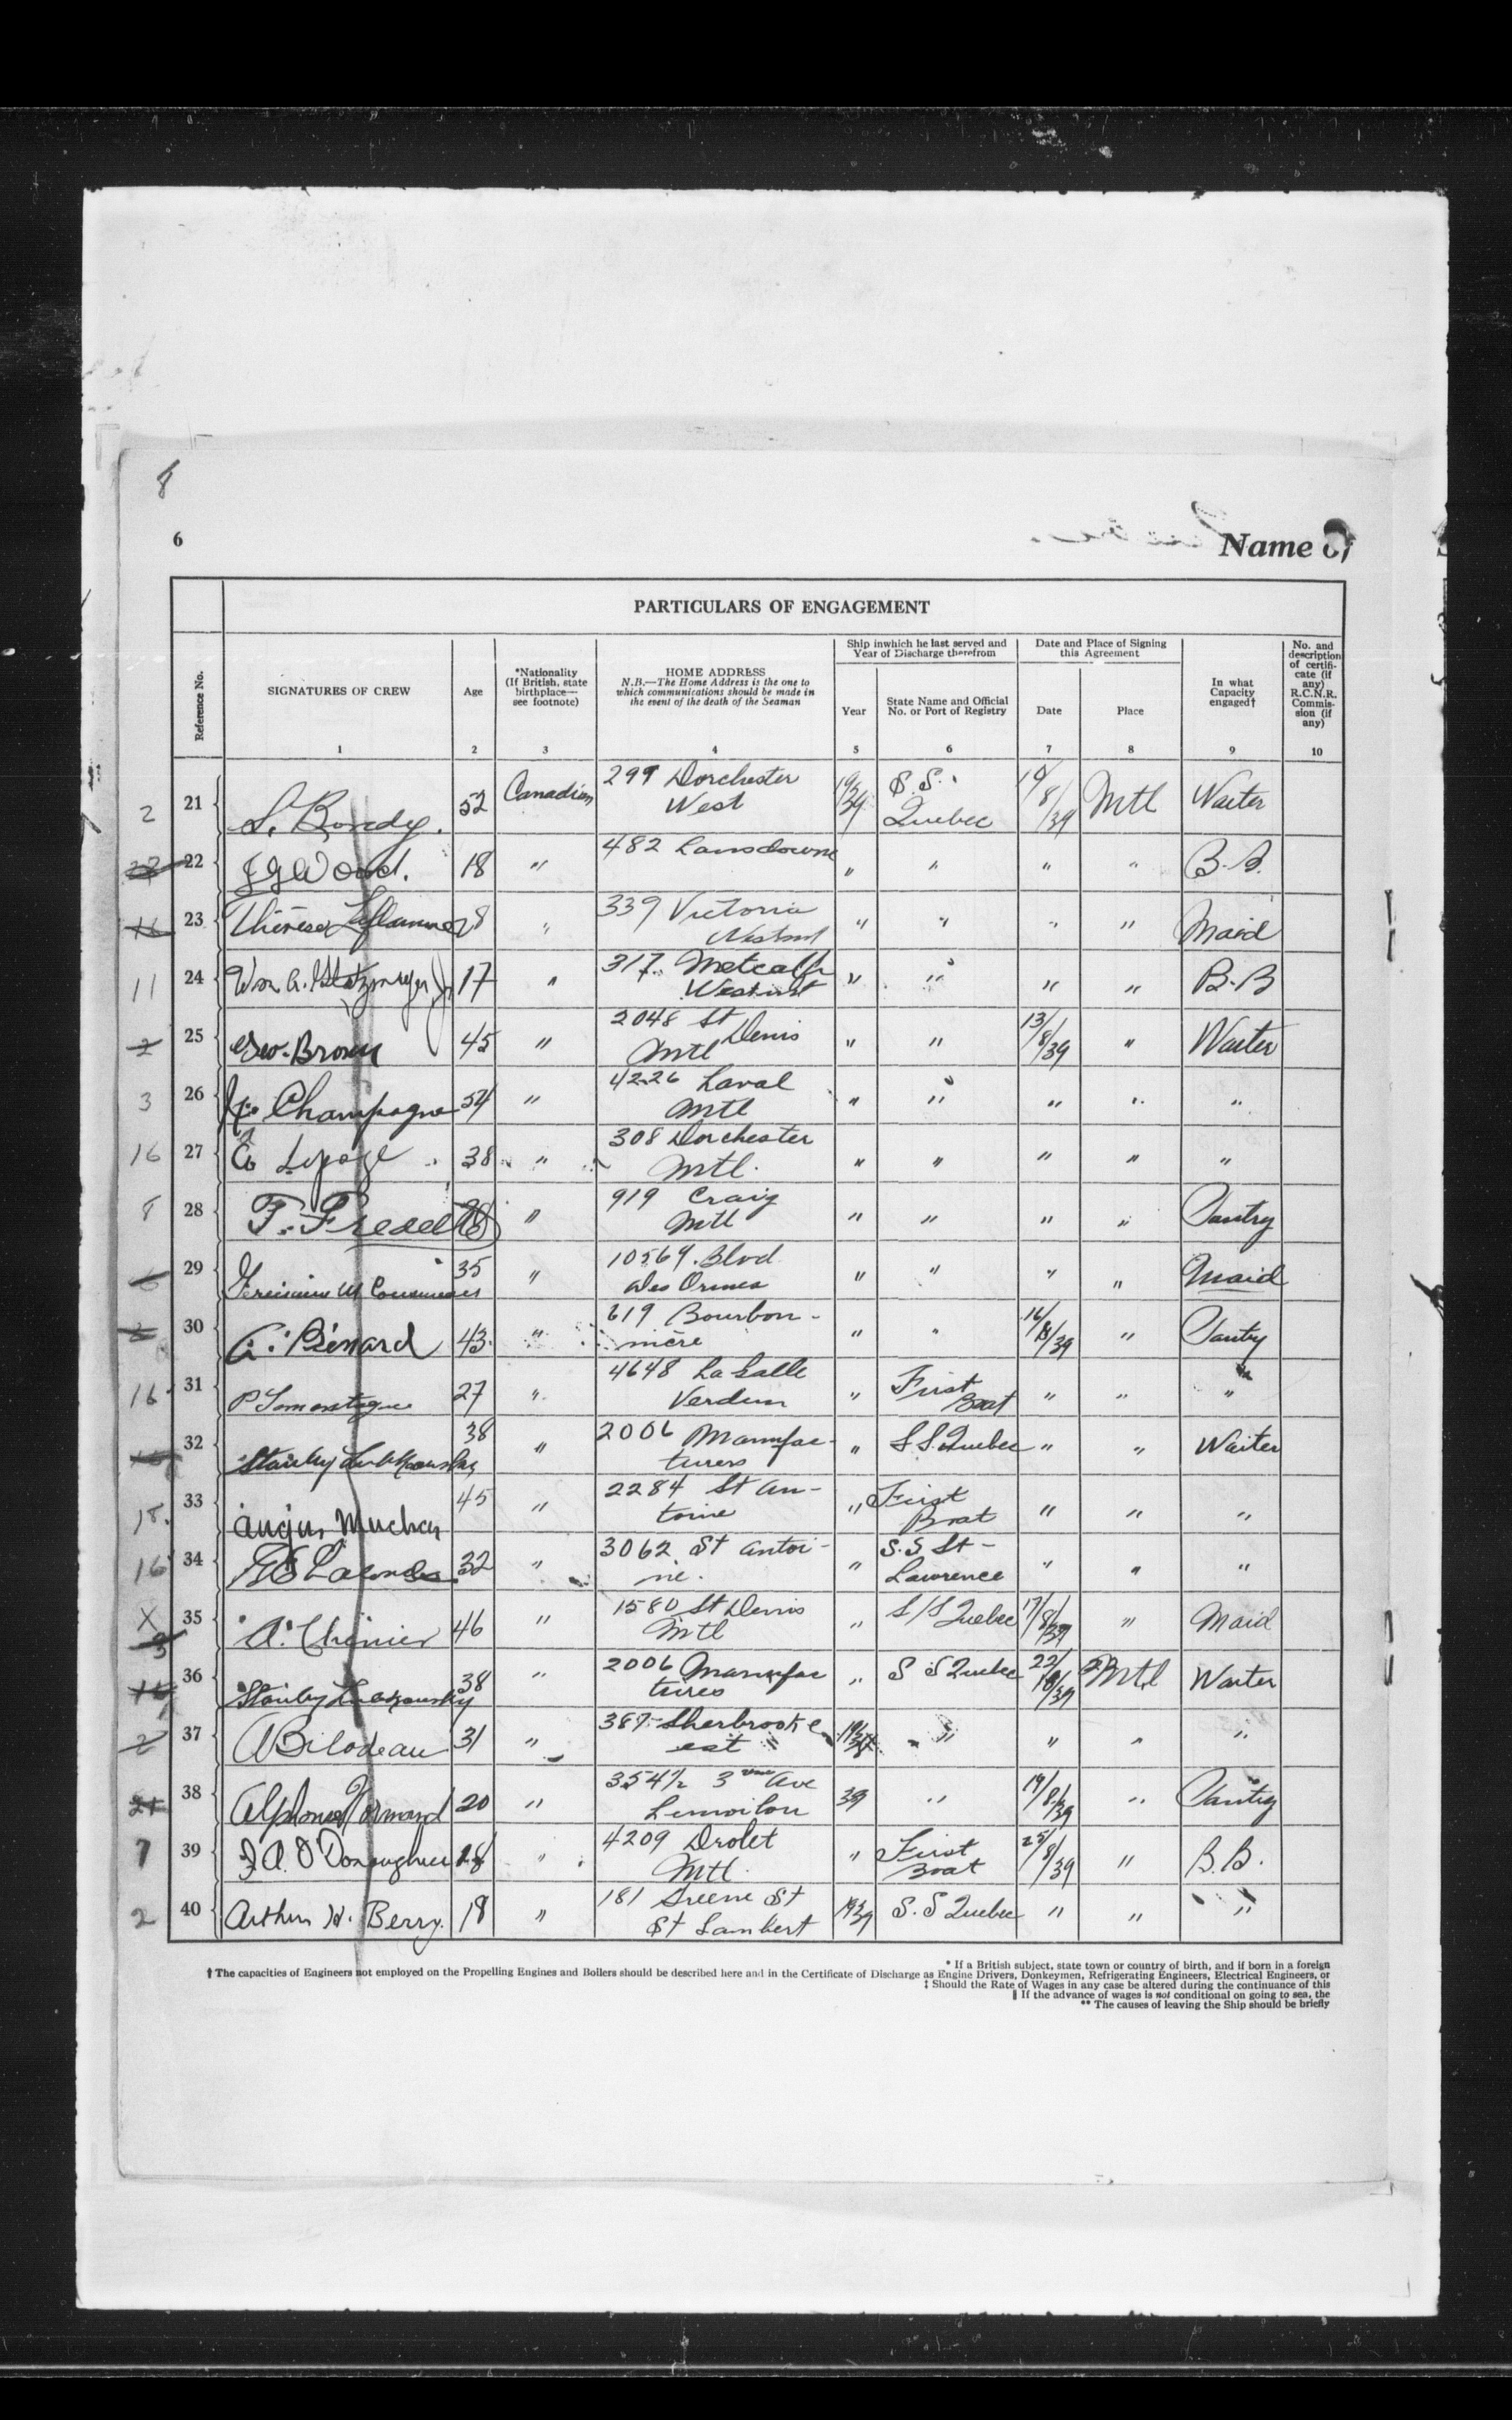 8
6
Name of
PARTICULARS OF ENGAGEMENT
Reference No.
SIGNATURES OF CREW
Age
*Nationality
(If British, state
birthplace—
see footnote)
HOME ADDRESS
N.B.—The Home Address is the one to
which communications should be made in
the event of the death of the Seaman
Ship inwhich he last served and
Year of Discharge therefrom
Year
State Name and Official
No. or Port of Registry
Date and Place of Signing
this Agreement
Date
Place
In what
Capacity
engaged†
No. and
description
of certifi-
cate (if
any)
R.C.N.R.
Commis-
sion (if
any)
1 2 3 4 5 6 7 8 9 10
2 21 52 Canadian 299 Dorchester West S.S. Quebec Mtl Waiter
22 J G Wood. 18 " 482 Lansdowne " " " " B.B.
23 Thérèse Laflamme 28 " 339 Victoria " " " " Maid
11 24 Wm. A. 17 " 317 Metcalfe " " " " B.B
2 25 Geo. Brown 45 " 2048 St Denis Mtl " " 13/8/39 " Waiter
3 26 Champagne 54 " 4226 Laval Mtl " " " " "
16 27 Lepage 38 " 308 Dorchester Mtl. " " " " "
8 28 " 919 Craig Mtl " " " " Pantry
29 35 " Blvd Des Ormes " " " " Maid
30 A. Bénard 43 " 619 Bourbon-nière " " 16/8/39 " Pantry
16 31 27 " 4648 La Salle Verdun " First Boat " " "
32 Stanley 38 " 2006 Manufac-turers " S.S. Quebec " " Waiter
18. 33 Angus 45 " 2284 St An-toine " First Boat " " "
16 34 32 " 3062 St Antoi-ne. " S.S St-Lawrence " " "
X 3 35 A. Chenier 46 " 1580 St Denis Mtl " S/S Quebec 17/8/39 " Maid
36 Stanley 38 " 2006 Manufac tures " S S Quebec 22/8/39 Mtl Waiter
2 37 A Bilodeau 31 " 387 Sherbrooke est " " " "
38 Alphonse Normand 20 " 354½ 3 eme Ave Limoilou 39 " 19/8/39 " Pantry
7 39 J A. O'Donoughue 18 " 4209 Drolet Mtl. " First Boat 25/8/39 " B.B.
2 40 Arthur H. Berry. 18 " 181 Greene St St Lambert S.S Quebec " " "
* If a British subject, state town or country of birth, and if born in a foreign
† The capacities of Engineers not employed on the Propelling Engines and Boilers should be described here and in the Certificate of Discharge as Engine Drivers, Donkeymen, Refrigerating Engineers, Electrical Engineers, or
‡ Should the Rate of Wages in any case be altered during the continuance of this
‖ If the advance of wages is not conditional on going to sea, the
** The causes of leaving the Ship should be briefly